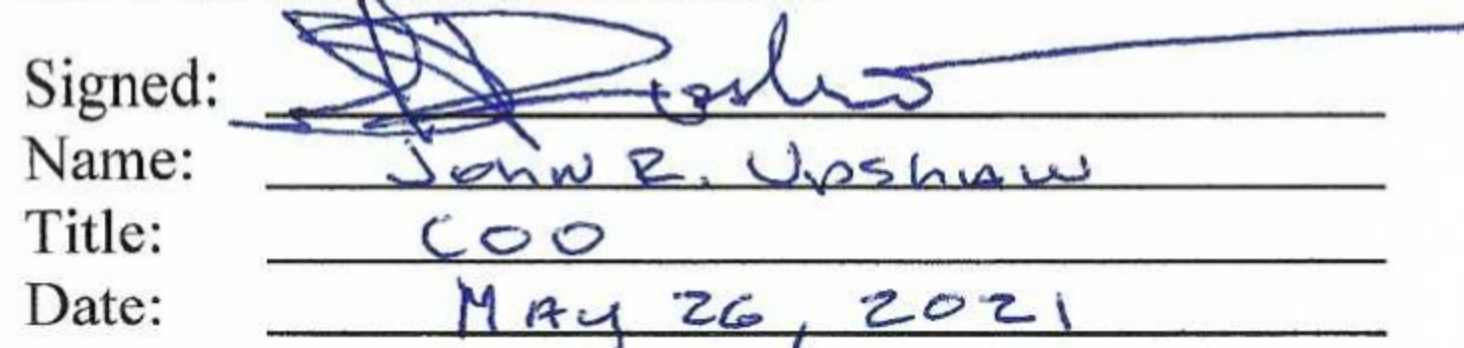 Signed:
Name: John R. Upshaw
Title: COO
Date: May 26, 2021